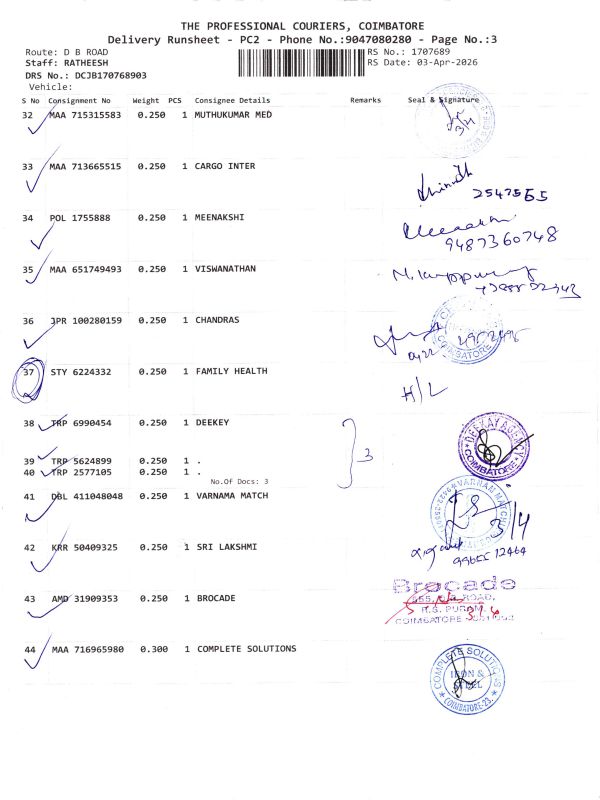 THE PROFESSIONAL COURIERS, COIMBATORE
Delivery Runsheet - PC2 - Phone No.:9047080280 - Page No.:3
Route: D B ROAD RS No.: 1707689
Staff: RATHEESH RS Date: 03-Apr-2026
DRS No.: DCJB170768903
Vehicle:
S No Consignment No Weight PCS Consignee Details Remarks Seal & Signature
32 MAA 715315583 0.250 1 MUTHUKUMAR MED
33 MAA 713665515 0.250 1 CARGO INTER
2547555
34 POL 1755888 0.250 1 MEENAKSHI
9487360748
35 MAA 651749493 0.250 1 VISWANATHAN
36 JPR 100280159 0.250 1 CHANDRAS
COIMBATORE
37 STY 6224332 0.250 1 FAMILY HEALTH
H/L
38 TRP 6990454 0.250 1 DEEKEY
DEEKAY AGENCY
COIMBATORE
39 TRP 5624899 0.250 1 .
40 TRP 2577105 0.250 1 .
3
No.Of Docs: 3
41 DBL 411048048 0.250 1 VARNAMA MATCH
3/4
42 KRR 50409325 0.250 1 SRI LAKSHMI
43 AMD 31909353 0.250 1 BROCADE
Brocade
R.S. PURAM,
COIMBATORE
44 MAA 716965980 0.300 1 COMPLETE SOLUTIONS
COMPLETE SOLUTIONS
IRON &
STEEL
COIMBATORE-23.